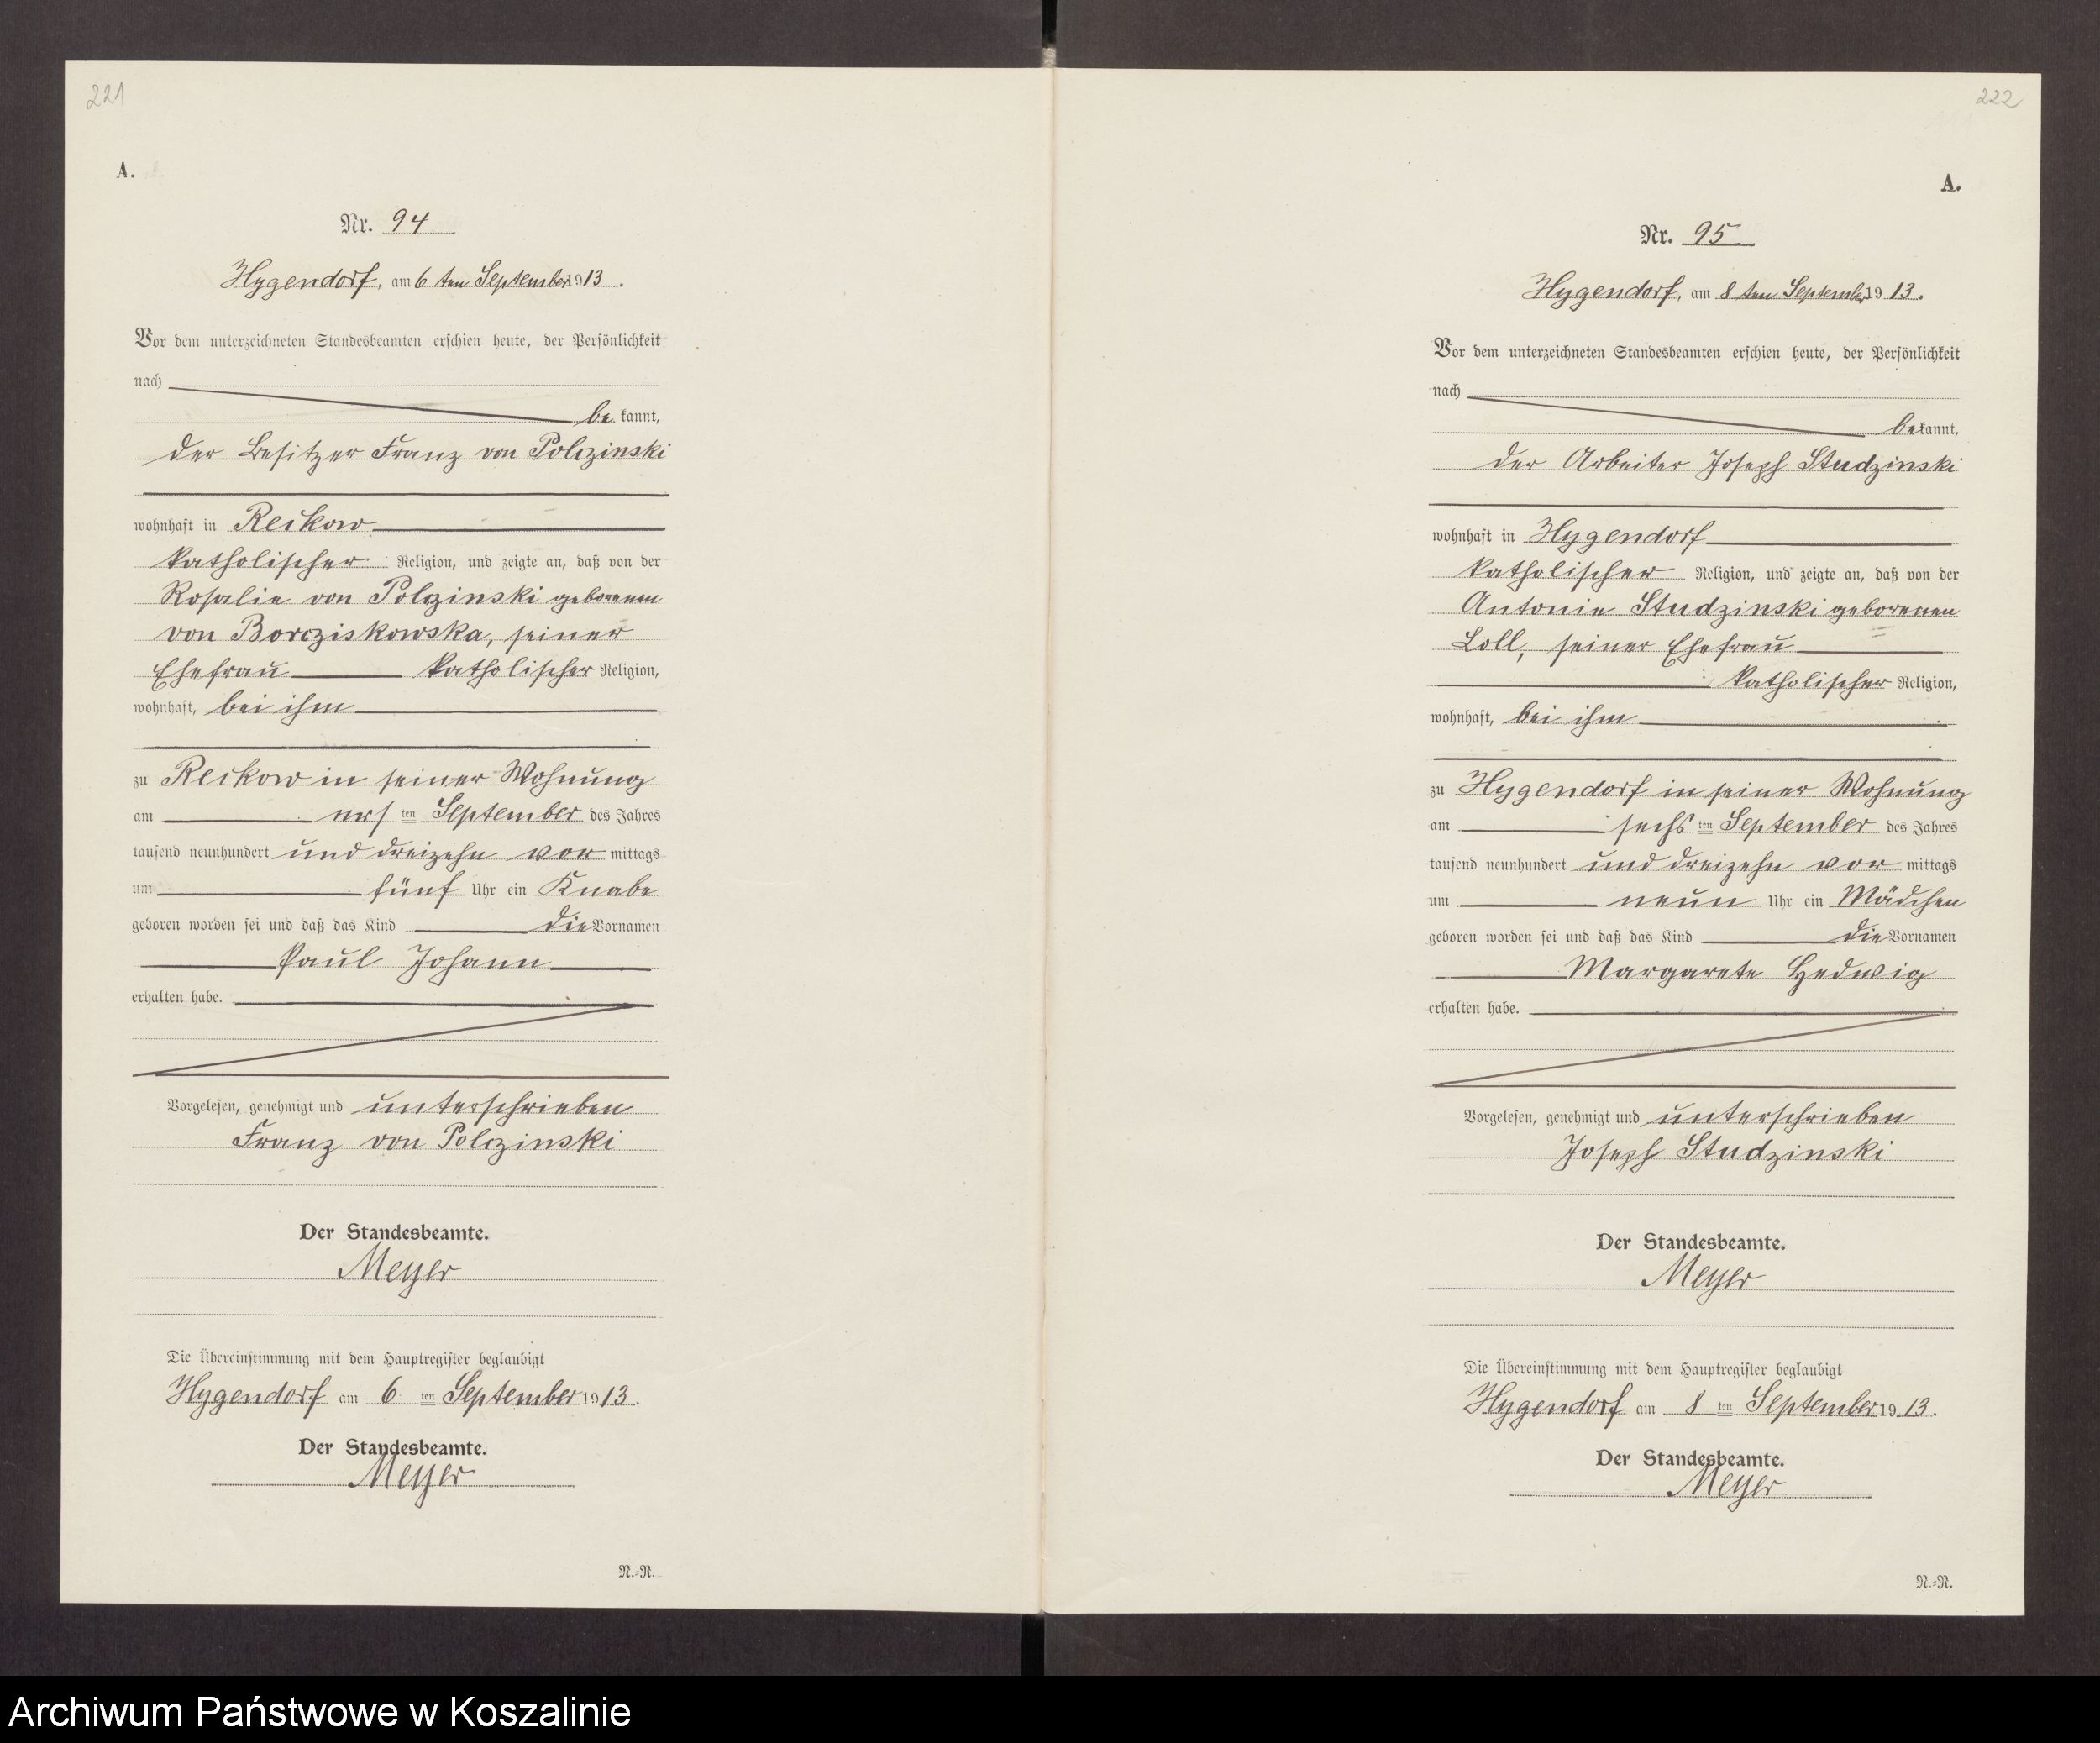 221
A.
Nr. 94
Hygendorf, am 6 ten September 1913.
Vor dem unterzeichneten Standesbeamten erschien heute, der Persönlichkeit
nach
be kannt,
der Besitzer Franz von Polczinski
wohnhaft in Reckow
katholischer Religion, und zeigte an, daß von der
Rosalie von Polczinski geborenen
von Borcziskowska, seiner
Ehefrau katholischer Religion,
wohnhaft, bei ihm
zu Reckow in seiner Wohnung
am ersten September des Jahres
tausend neunhundert und dreizehn vor mittags
um fünf Uhr ein Knabe
geboren worden sei und daß das Kind die Vornamen
Paul Johann
erhalten habe.
Vorgelesen, genehmigt und unterschrieben
Franz von Polczinski
Der Standesbeamte.
Meyer
Die Übereinstimmung mit dem Hauptregister beglaubigt
Hygendorf am 6 ten September 1913.
Der Standesbeamte.
Meyer
N.-N.
222
A.
Nr. 95
Hygendorf, am 8 ten September 1913.
Vor dem unterzeichneten Standesbeamten erschien heute, der Persönlichkeit
nach
bekannt,
der Arbeiter Joseph Studzinski
wohnhaft in Hygendorf
katholischer Religion, und zeigte an, daß von der
Antonie Studzinski geborenen
Loll, seiner Ehefrau
katholischer Religion,
wohnhaft, bei ihm
zu Hygendorf in seiner Wohnung
am sechsten September des Jahres
tausend neunhundert und dreizehn vor mittags
um neun Uhr ein Mädchen
geboren worden sei und daß das Kind die Vornamen
Margarete Hedwig
erhalten habe.
Vorgelesen, genehmigt und unterschrieben
Joseph Studzinski
Der Standesbeamte.
Meyer
Die Übereinstimmung mit dem Hauptregister beglaubigt
Hygendorf am 8 ten September 1913.
Der Standesbeamte.
Meyer
N.-N.
Archiwum Państwowe w Koszalinie